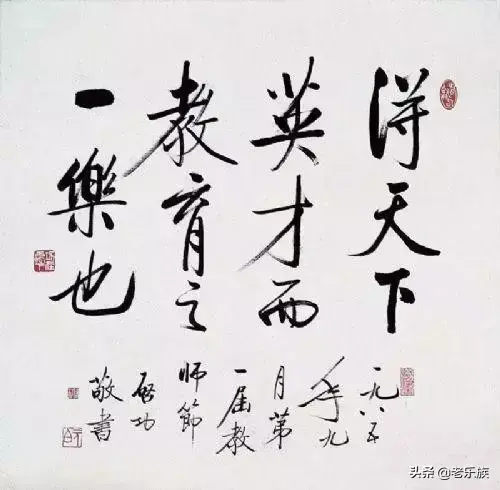 得天下
英才而
教育之
一樂也
一九八五
年九
月第
一届教
師節
啟功
敬書
头条 @老乐族